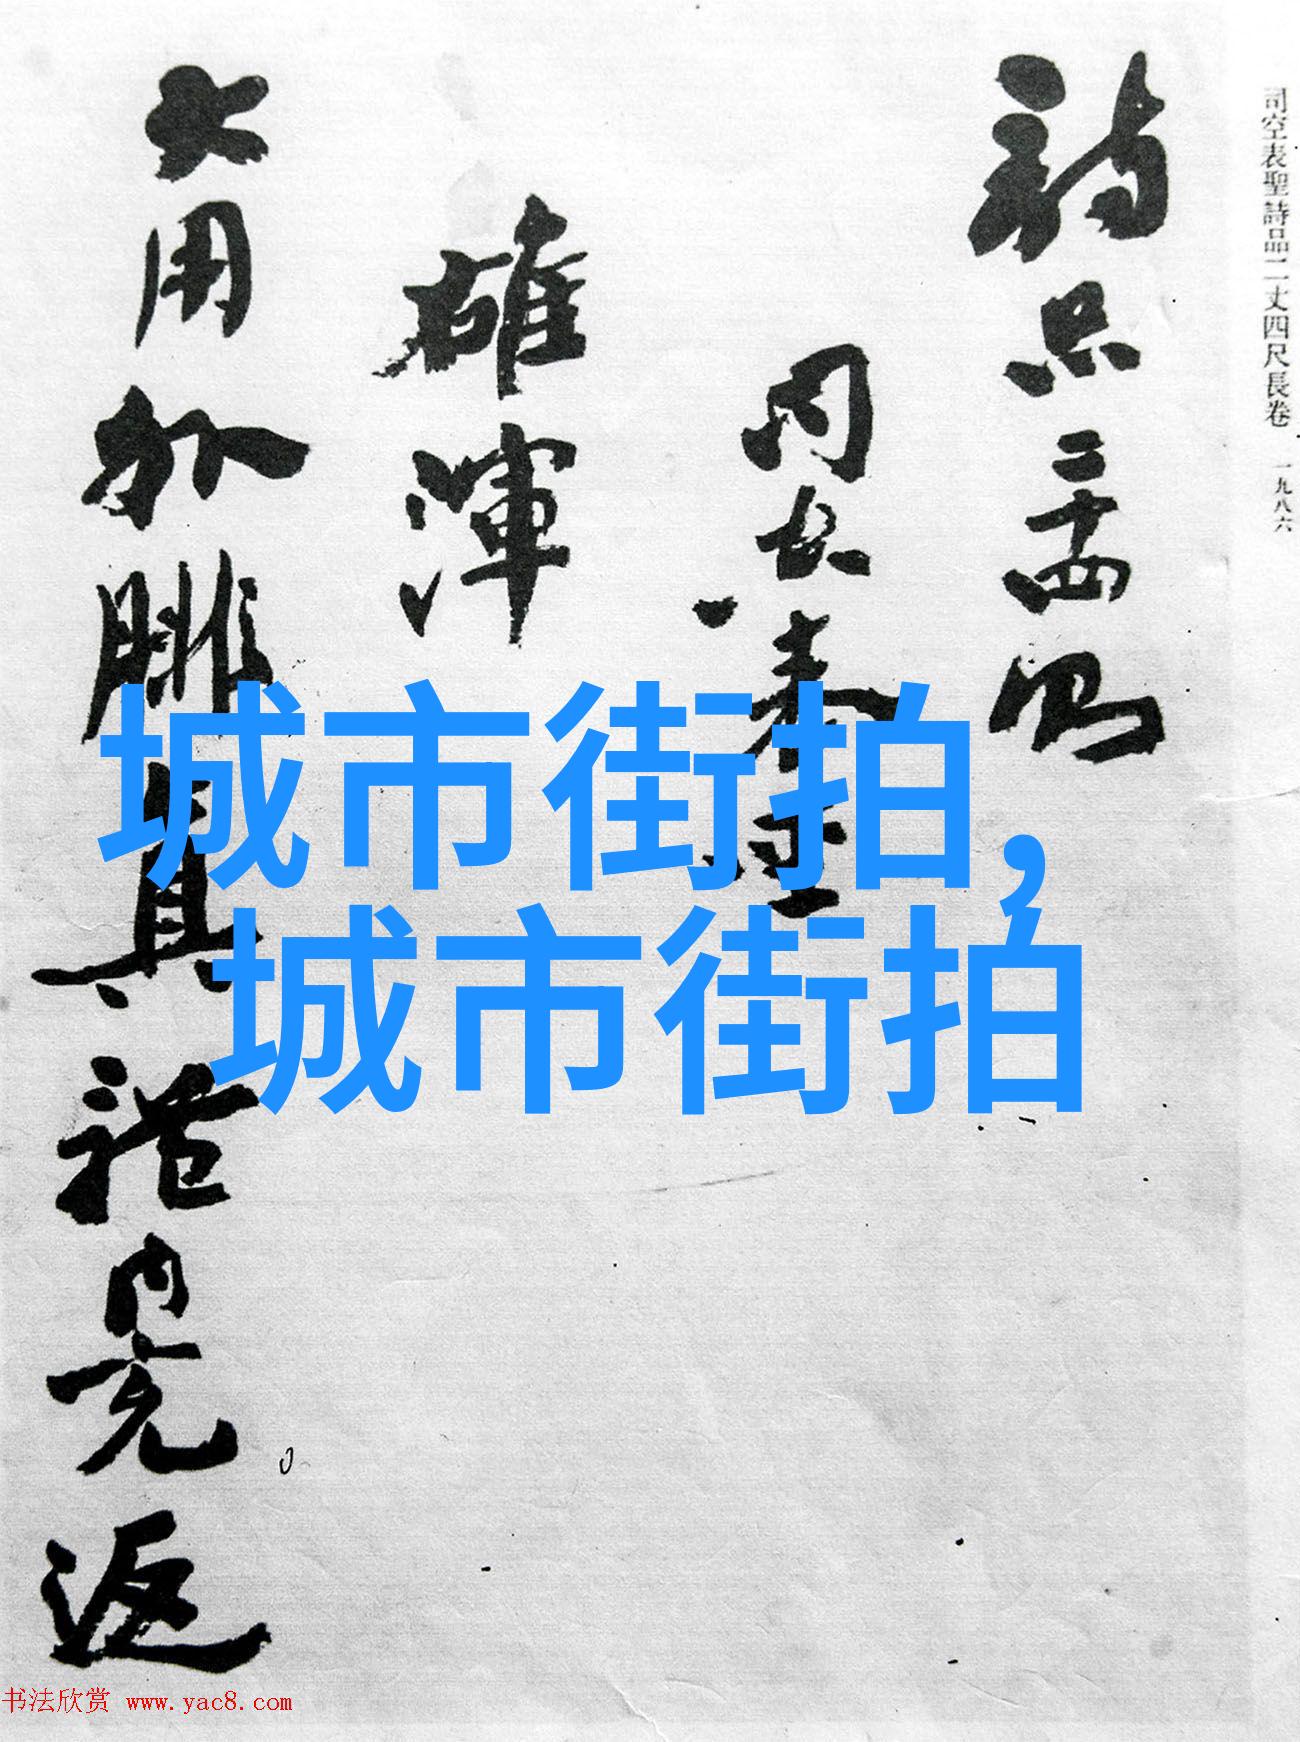 司空表聖詩品二丈四尺長卷 一九八六
詩品二十四則
雄渾
大用外腓真體内充返
城市街拍,
城市街拍
书法欣赏 www.yac8.com